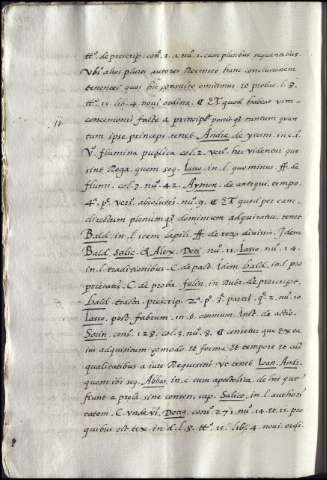 ttº. de prescrip. conº. 1. nu. 1. cum pluribus sequentibus
Ubi alios plures autores Recenset hanc conclusionem
tenentes quos hic omittimus. 10 probat l. 8.
ttº. 11. lib. 4. novi ordina. C Et quod habeat vim
concessionis factae a principe tantum quan
tum ipse princeps tenet Andre. de ysern. in. c. 1.
Vº. flumina publica col. 2. versº. hec videntur que
sint Rega. quem seq. Iaso. in. l. quominus. ff. de
flumi. col. 3. nu. 42. Aymon. de antiqui. tempo.
4ª. pª. versº. absolutis. nu. 9. C Et quod per eam
directum plenumq; dominium adquiratur. tenet
Bald. in. l. item lapilli. ff. de rerum divisio. Idem
Bald. Salic. & Alex. Deci. nu. 11. Iaso. nu. 14.
in. l. traditionibus. C. de pact. Idem bald. in. l. pro
prietatis. C. de proba. in. Rubº. de prescript.
bald. tracta. prescrip. 2ª. pª. 3ª. partis. q. 2. nu. 10
Iaso. post. fabrum. in. §. commun. Inst. de actio.
Socin. consº. 128. col. 3. nu. 8. C censetur que ex ea
ius adquisitum eo modo et forma et tempore et cum
qualitatibus a iure Requisitis ut tenet Ioan. Andr.
quem ibi seq. Abbas. in. c. cum apostolica. de his que
fiunt a prela. sine consen. cap. Salice. in. l. authori
tatem. C. unde vi. Deci. consº. 271. nu. 14. et. 11. pro
quibus est tex. in. d. l. 8. ttº. 11. lib. 4. novi. ordi.